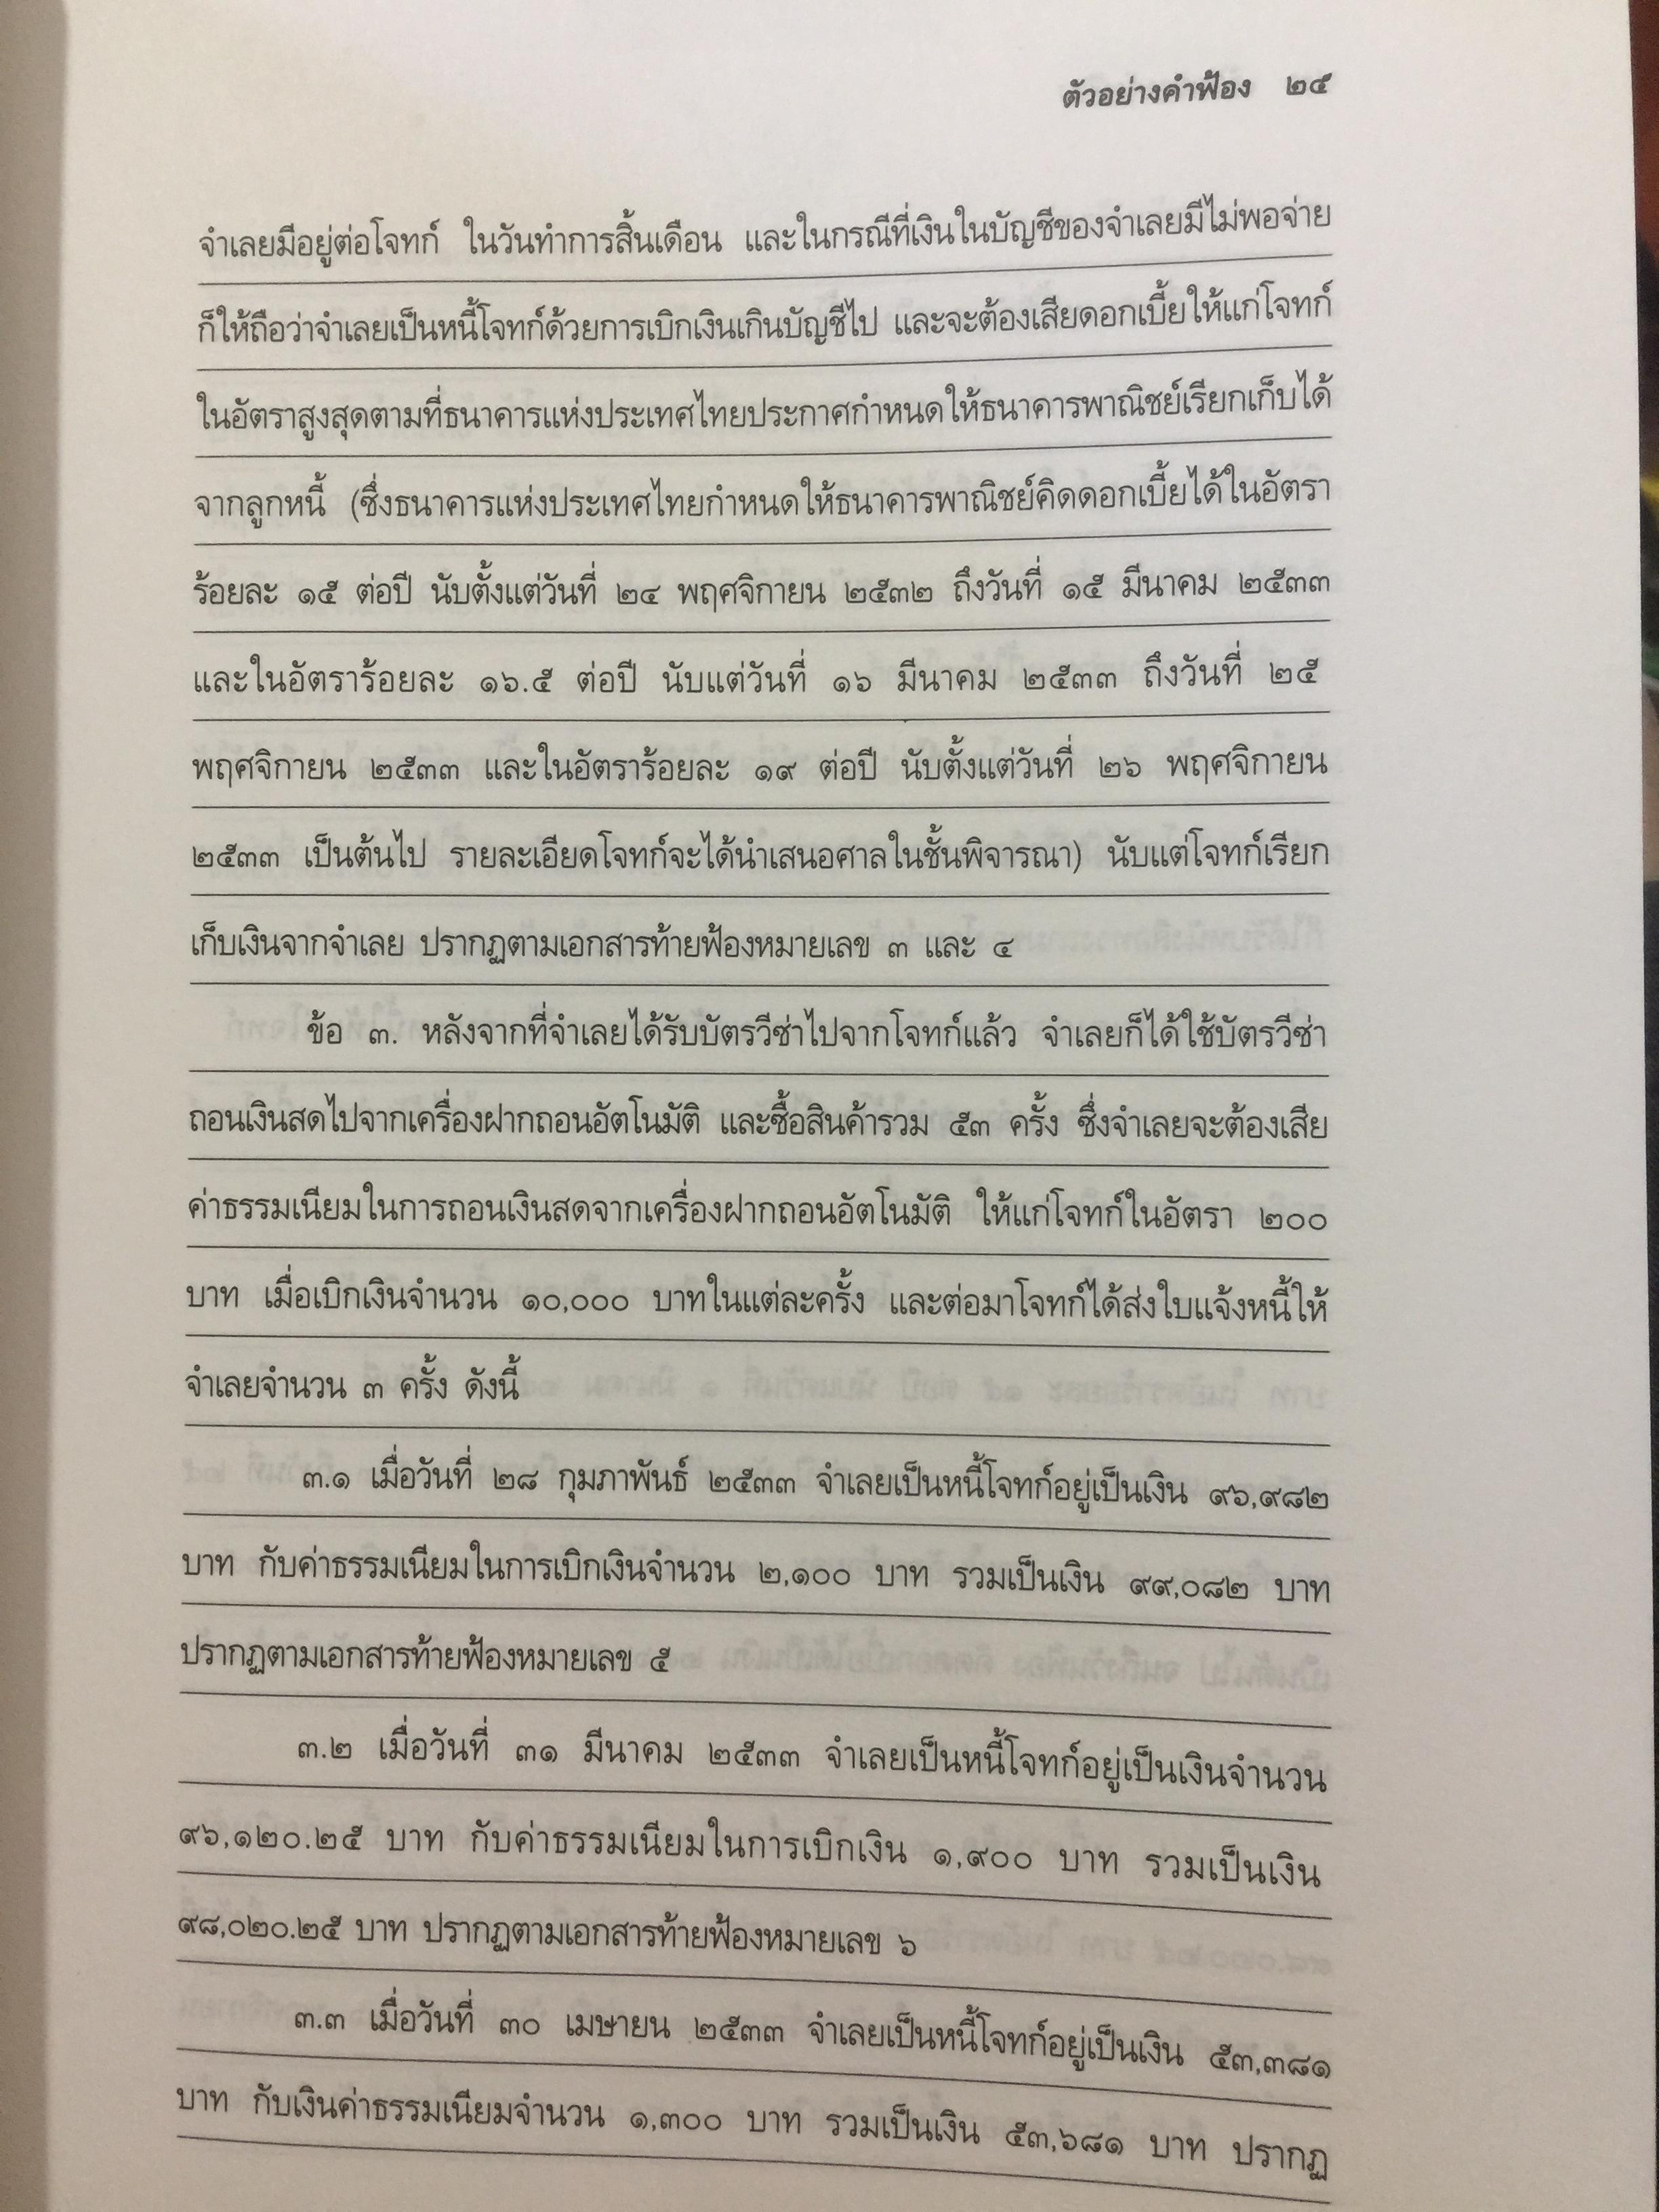 ตัวอย่างคำฟ้อง ๒๕
จำเลยมีอยู่ต่อโจทก์ ในวันทำการสิ้นเดือน และในกรณีที่เงินในบัญชีของจำเลยมีไม่พอจ่าย
ก็ให้ถือว่าจำเลยเป็นหนี้โจทก์ด้วยการเบิกเงินเกินบัญชีไป และจะต้องเสียดอกเบี้ยให้แก่โจทก์
ในอัตราสูงสุดตามที่ธนาคารแห่งประเทศไทยประกาศกำหนดให้ธนาคารพาณิชย์เรียกเก็บได้
จากลูกหนี้ (ซึ่งธนาคารแห่งประเทศไทยกำหนดให้ธนาคารพาณิชย์คิดดอกเบี้ยได้ในอัตรา
ร้อยละ ๑๕ ต่อปี นับตั้งแต่วันที่ ๒๔ พฤศจิกายน ๒๕๓๒ ถึงวันที่ ๑๕ มีนาคม ๒๕๓๓
และในอัตราร้อยละ ๑๖.๕ ต่อปี นับแต่วันที่ ๑๖ มีนาคม ๒๕๓๓ ถึงวันที่ ๒๕
พฤศจิกายน ๒๕๓๓ และในอัตราร้อยละ ๑๙ ต่อปี นับตั้งแต่วันที่ ๒๖ พฤศจิกายน
๒๕๓๓ เป็นต้นไป รายละเอียดโจทก์จะได้นำเสนอศาลในชั้นพิจารณา) นับแต่โจทก์เรียก
เก็บเงินจากจำเลย ปรากฏตามเอกสารท้ายฟ้องหมายเลข ๓ และ ๔
ข้อ ๓. หลังจากที่จำเลยได้รับบัตรวีซ่าไปจากโจทก์แล้ว จำเลยก็ได้ใช้บัตรวีซ่า
ถอนเงินสดไปจากเครื่องฝากถอนอัตโนมัติ และซื้อสินค้ารวม ๕๓ ครั้ง ซึ่งจำเลยจะต้องเสีย
ค่าธรรมเนียมในการถอนเงินสดจากเครื่องฝากถอนอัตโนมัติ ให้แก่โจทก์ในอัตรา ๒๐๐
บาท เมื่อเบิกเงินจำนวน ๑๐,๐๐๐ บาทในแต่ละครั้ง และต่อมาโจทก์ได้ส่งใบแจ้งหนี้ให้
จำเลยจำนวน ๓ ครั้ง ดังนี้
๓.๑ เมื่อวันที่ ๒๘ กุมภาพันธ์ ๒๕๓๓ จำเลยเป็นหนี้โจทก์อยู่เป็นเงิน ๙๖,๙๘๒
บาท กับค่าธรรมเนียมในการเบิกเงินจำนวน ๒,๑๐๐ บาท รวมเป็นเงิน ๙๙,๐๘๒ บาท
ปรากฏตามเอกสารท้ายฟ้องหมายเลข ๕
๓.๒ เมื่อวันที่ ๓๑ มีนาคม ๒๕๓๓ จำเลยเป็นหนี้โจทก์อยู่เป็นเงินจำนวน
๙๖,๑๒๐.๒๕ บาท กับค่าธรรมเนียมในการเบิกเงิน ๑,๙๐๐ บาท รวมเป็นเงิน
๙๘,๐๒๐.๒๕ บาท ปรากฏตามเอกสารท้ายฟ้องหมายเลข ๖
๓.๓ เมื่อวันที่ ๓๐ เมษายน ๒๕๓๓ จำเลยเป็นหนี้โจทก์อยู่เป็นเงิน ๕๓,๓๘๑
บาท กับเงินค่าธรรมเนียมจำนวน ๑,๓๐๐ บาท รวมเป็นเงิน ๕๓,๖๘๑ บาท ปรากฏ